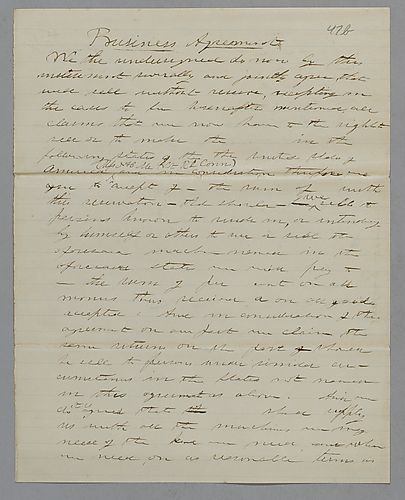 47b
Business Agreement
We the undersigned do now by this
instrument severally and jointly agree that
we sell without reserve excepting in
the cases to be hereafter mentioned all
claims that we now have to the right
sell or to make the in the
following States of the United States of
America and in consideration therefore we
to accept of – the sum of with
this reservation – that should
persons known to reside in, or intending
by himself or others to use or sell the
aforesaid machine named in the
aforesaid States we will pay –
– the sum of per cent on all
monies thus received and on all
excepted. And in consideration of this
agreement on our part we claim the
same returns on the part of should
he sell to persons under similar cir-
cumstances in the States not named
in this agreement as above. And we
agreed that shall supply
us with all the machines we may
need of the kind we need and when
we need on as reasonable terms as